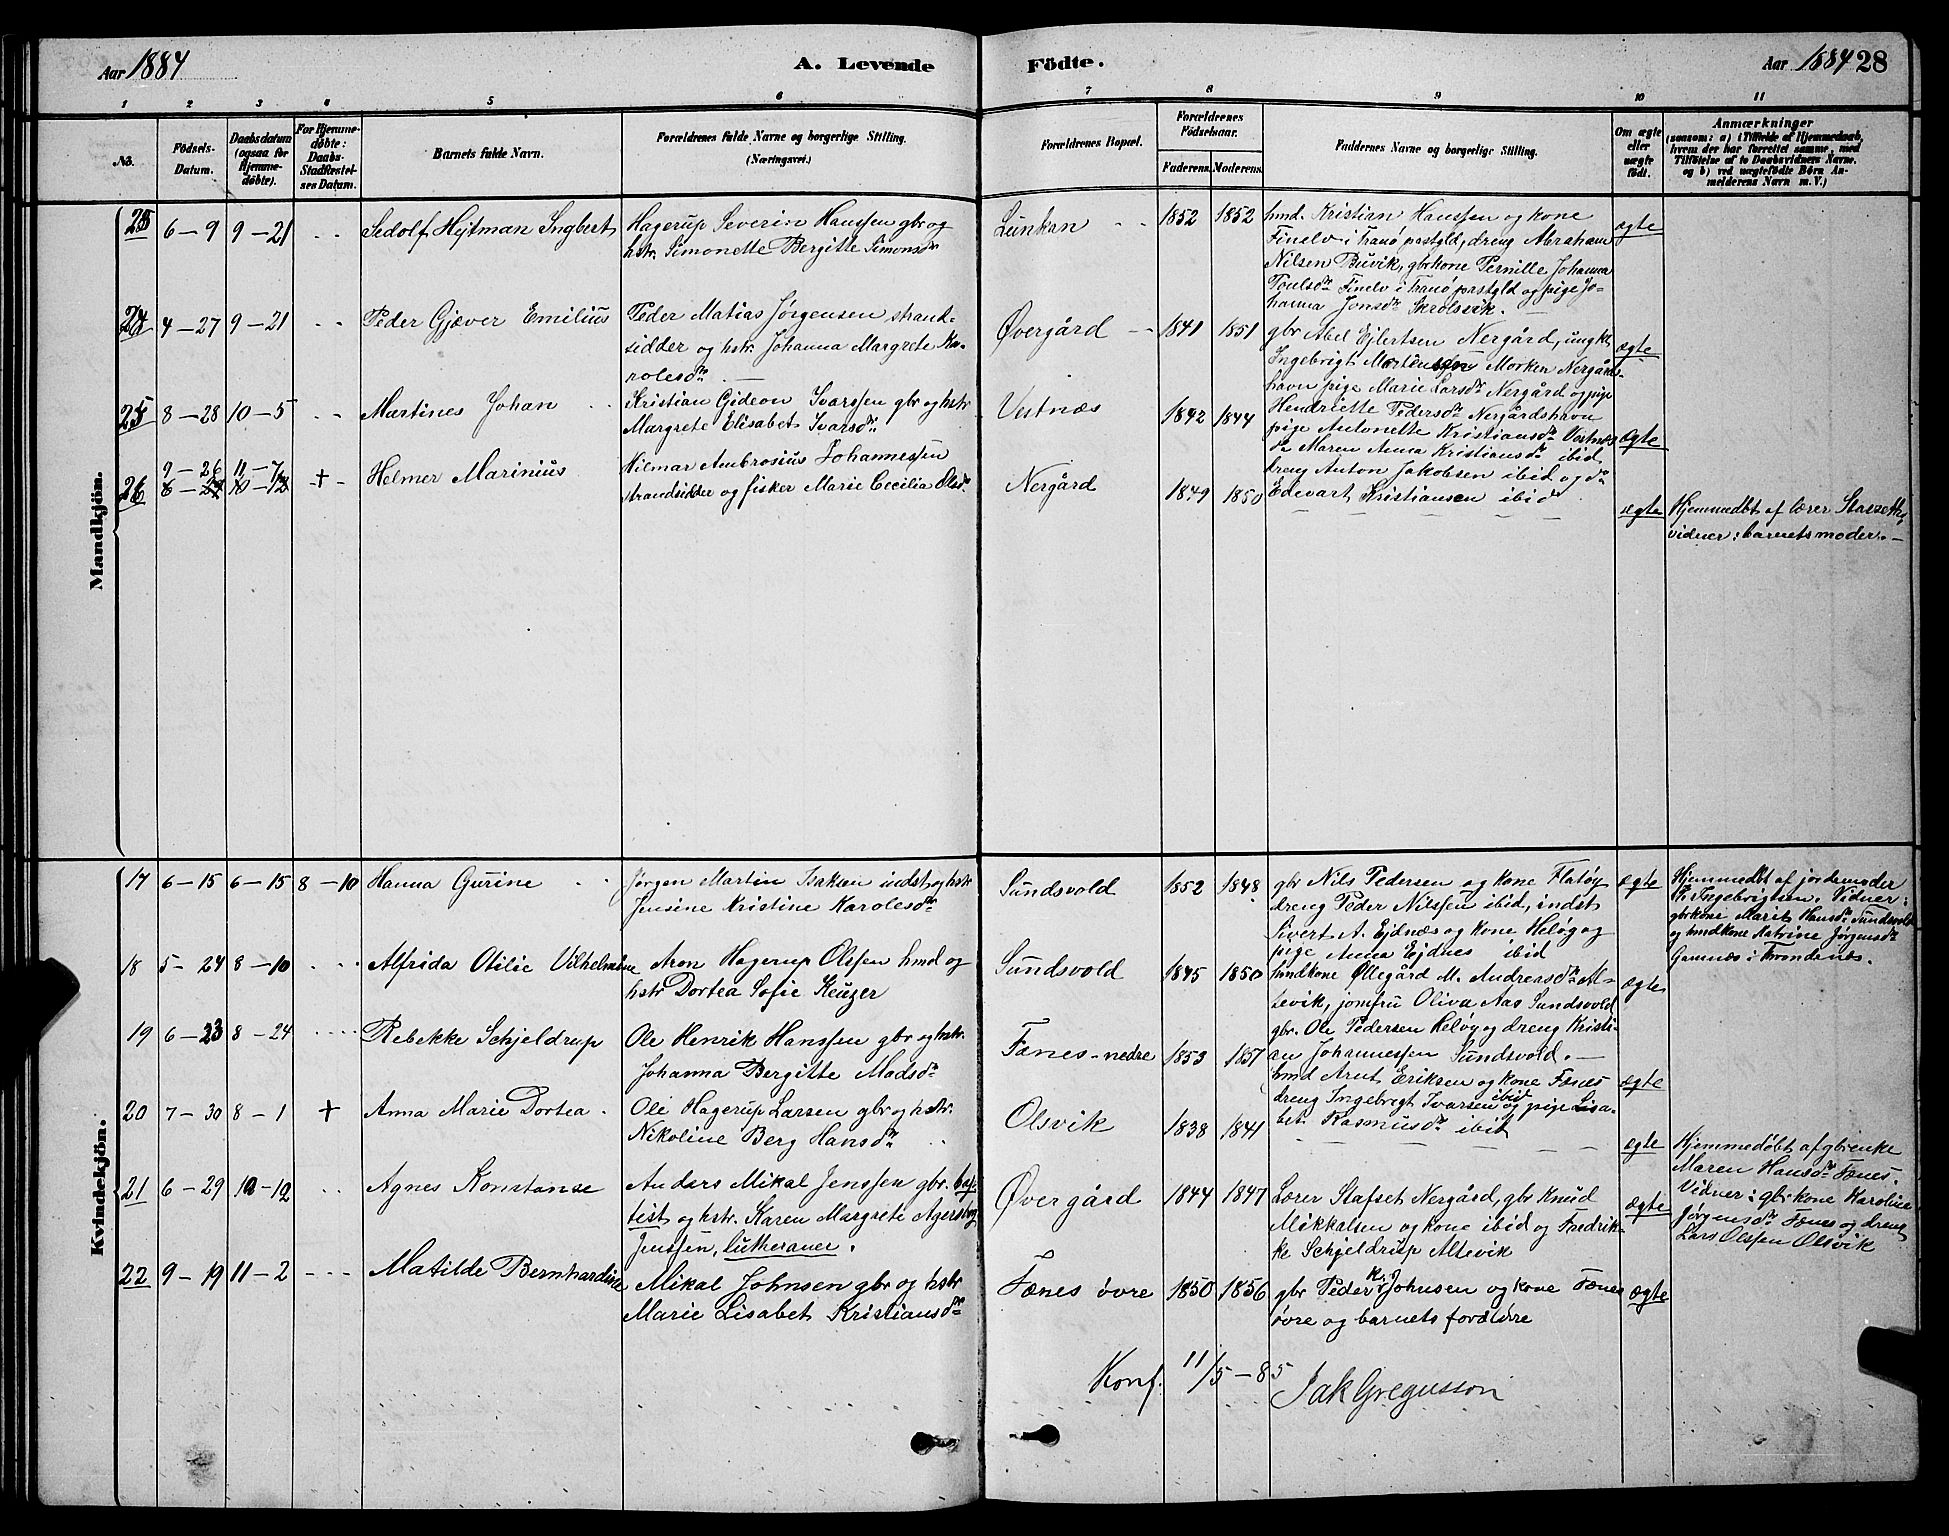 Aar 1884
A. Levende
Födte.
Aar 1884 28
1 2 3 4 5 6 7 8 9 10 11
No.
Födsels-Datum.
Daabsdatum (ogsaa for Hjemme-döbte).
For Hjemme-döbte: Daabs-Stadfæstel-ses Datum.
Barnets fulde Navn.
Forældrenes fulde Navne og borgerlige Stilling.
(Næringsvei.)
Forældrenes Bopæl.
Forældrenes Födselsaar.
Faderens. Moderens.
Faddernes Navne og borgerlige Stilling.
Om ægte eller uægte födt.
Anmærkninger
(saasom: a) i Tilfælde af Hjemmedaab, hvem der har forrettet samme, med Tilföielse af to Daabsvidners Navne. og b) ved uægtefödte Börn An-melderens Navn m. V.)
Mandkjön.
23 6-9 9-21 Sedolf Hejtman Ingbert
Hagerup Severin Hanssen gbr og
hstr. Simonette Bergitte Simonsdr
Lunkan 1852 1852
hmd. Kristian Hanssen og kone
Finelv i Tranø pastgld, dreng Abraham
Nilsen Buvik, gbrkone Pernille Johanna
Poulsdr Finelv i Tranø pastgld og pige Jo-
hanna Jonsdr Skrolsvik.
ægte
24 4-27 9-21 Peder Gjæver Emilius
Peder Matias Jørgensen, strand-
sidder og hstr. Johanna Margrete Ka-
rolesdr
Øvergård 1841 1851
gbr Abel Ejlertsen Nergård, ungk.
Ingebrigt Mortensen Morken Nergårds-
havn pige Marie Larsdr Nergård og pige
Hendriette Pedersdr Nergårdshavn
ægte
25 8-28 10-5 Martines Johan
Kristian Gideon Ivarssen gbr og hstr
Margrete Elisabet Ivarsdr.
Vestnæs 1842 1844
pige Antonette Kristiansdr Vestnæs
do Maren Anna Kristiansdr ibid
dreng Anton Jakobsen ibid og do
Edevart Kristiansen ibid
ægte
26 9-26 11-7 + Helmer Marinius
Hilmar Ambrosius Johannessen
strandsidder og fisker Marie Cecilia Olsdr.
Nergård 1849 1850
ægte
Hjemmedøbt af lærer
vidner: barnets moder.
Kvindekjön.
17 6-15 6-15 8-10 Hanna Gurine
Jørgen Martin Isaksen indst og hstr
Jensine Kristine Karolesdr
Sundsvold 1852 1848
gbr Nils Pedersen og kone Flatøy
dreng Peder Nilssen ibid, indst
Sivert A. Ejdnæs og kone Heløy og
pige Anna Ejdnes ibid
ægte
Hjemmedøbt af jordemoder
Ingebrigtsen. Vidner:
gbrkone Marit Hansdr Sundsvold
og hmdkone Katrine Jørgensdr
Gamnæs i Trondenæs.
18 5-24 8-10 Alfrida Otilie Vilhelmine
Aron Hagerup Olssen hmd og
hstr Dortea Sofie Keuzer
Sundsvold 1845 1850
hmdkone Øllegård M. Andreasdr Al-
tevik, jomfru Oliva Aas Sundsvold
gbr. Ole Pedersen Heløy og dreng Kristi-
an Johannessen Sundsvold.
ægte
19 6-23 8-24 Rebekke Schjeldrup
Ole Henrik Hanssen gbr og hstr.
Johanna Bergitte Madsdr
Fænes-nedre 1853 1857
hmd Arnt Eriksen og kone Fænes
dreng Ingebrigt Ivarsen ibid og pige Lisa-
bet Rasmusdr ibid
ægte
20 7-30 8-1 + Anna Marie Dortea
Ole Hagerup Larsen gbr og hstr.
Nikoline Berg Hansdr
Olsvik 1838 1841
ægte
Hjemmedøbt af gbrenke
Maren Hansdr Fænes.
Vidner: gbrkone Karoline
Jørgensdr Fænes og dreng
Lars Olssen Olsvik
21 6-29 10-12 Agnes Konstanse
Anders Mikal Jenssen gbr. bap
tist og hstr. Karen Margrete Agersborg
Jenssen, lutheraner.
Øvergård 1844 1847
Lærer Stafset Nergård, gbr Knud
Mikkalsen og kone ibid og Fredrik-
ke Schjeldrup Altevik
ægte
22 9-19 11-2 Matilde Bernhardine
Mikal Johnsen gbr og hstr
Marie Lisabet Kristiansdr
Fænes øvre 1850 1856
gbr Peder K. Johnsen og kone Fænes
øvre og barnets forældre
ægte
Konf. 11/5-85
Jak Gregusson